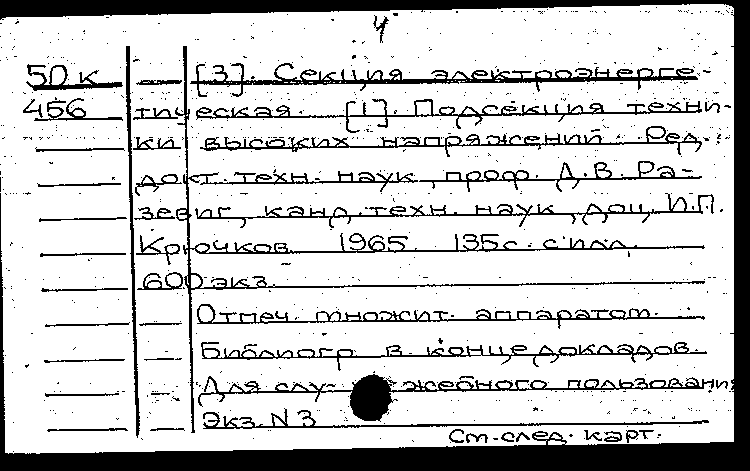 4
50 к — [3]. Секция электроэнерге-
456 тическая. [1]. Подсекция техни-
ки высоких напряжений. Ред.:
докт. техн. наук, проф. Д.В. Ра-
зевиг, канд. техн. наук, доц. И.П.
Крючков. 1965. 135с. с илл.
600 экз.
Отпеч. множит. аппаратом.
— Библиогр. в конце докладов.
— Для слу-жебного пользования
— Экз. N 3
См. след. карт.